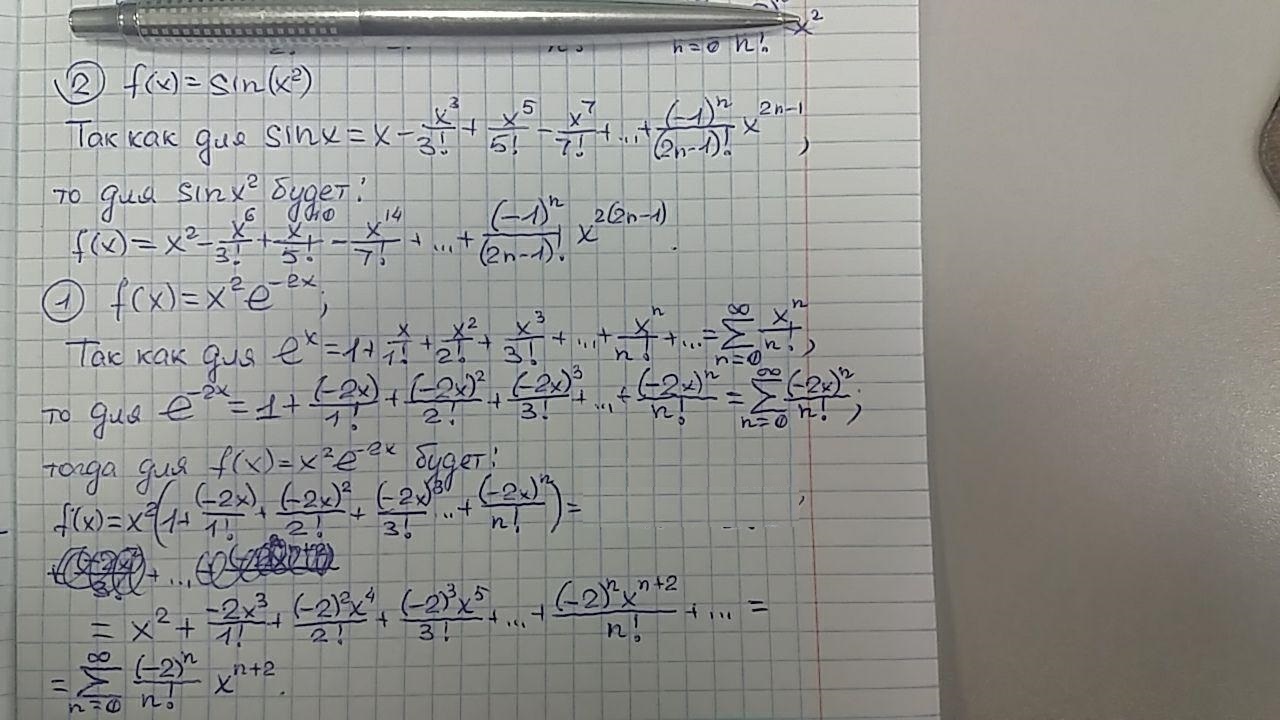 n=0 n! x²
② f(x) = sin(x²)
Так как для sin x = x - x³/3! + x⁵/5! - x⁷/7! + ... + (-1)ⁿ/(2n-1)! x²ⁿ⁻¹,
то для sin x² будет:
f(x) = x² - x⁶/3! + x¹⁰/5! - x¹⁴/7! + ... + (-1)ⁿ/(2n-1)! x²⁽²ⁿ⁻¹⁾.
① f(x) = x²e⁻²ˣ;
Так как для eˣ = 1 + x/1! + x²/2! + x³/3! + ... + xⁿ/n! + ... = ∞∑n=0 xⁿ/n!,
то для e⁻²ˣ = 1 + (-2x)/1! + (-2x)²/2! + (-2x)³/3! + ... + (-2x)ⁿ/n! = ∞∑n=0 (-2x)ⁿ/n!;
тогда для f(x) = x²e⁻²ˣ будет:
f(x) = x²(1 + (-2x)/1! + (-2x)²/2! + (-2x)³/3! ... + (-2x)ⁿ/n!) =
= x² + -2x³/1! + (-2)²x⁴/2! + (-2)³x⁵/3! + ... + (-2)ⁿxⁿ⁺²/n! + ... =
= ∞∑n=0 (-2)ⁿ/n! xⁿ⁺².